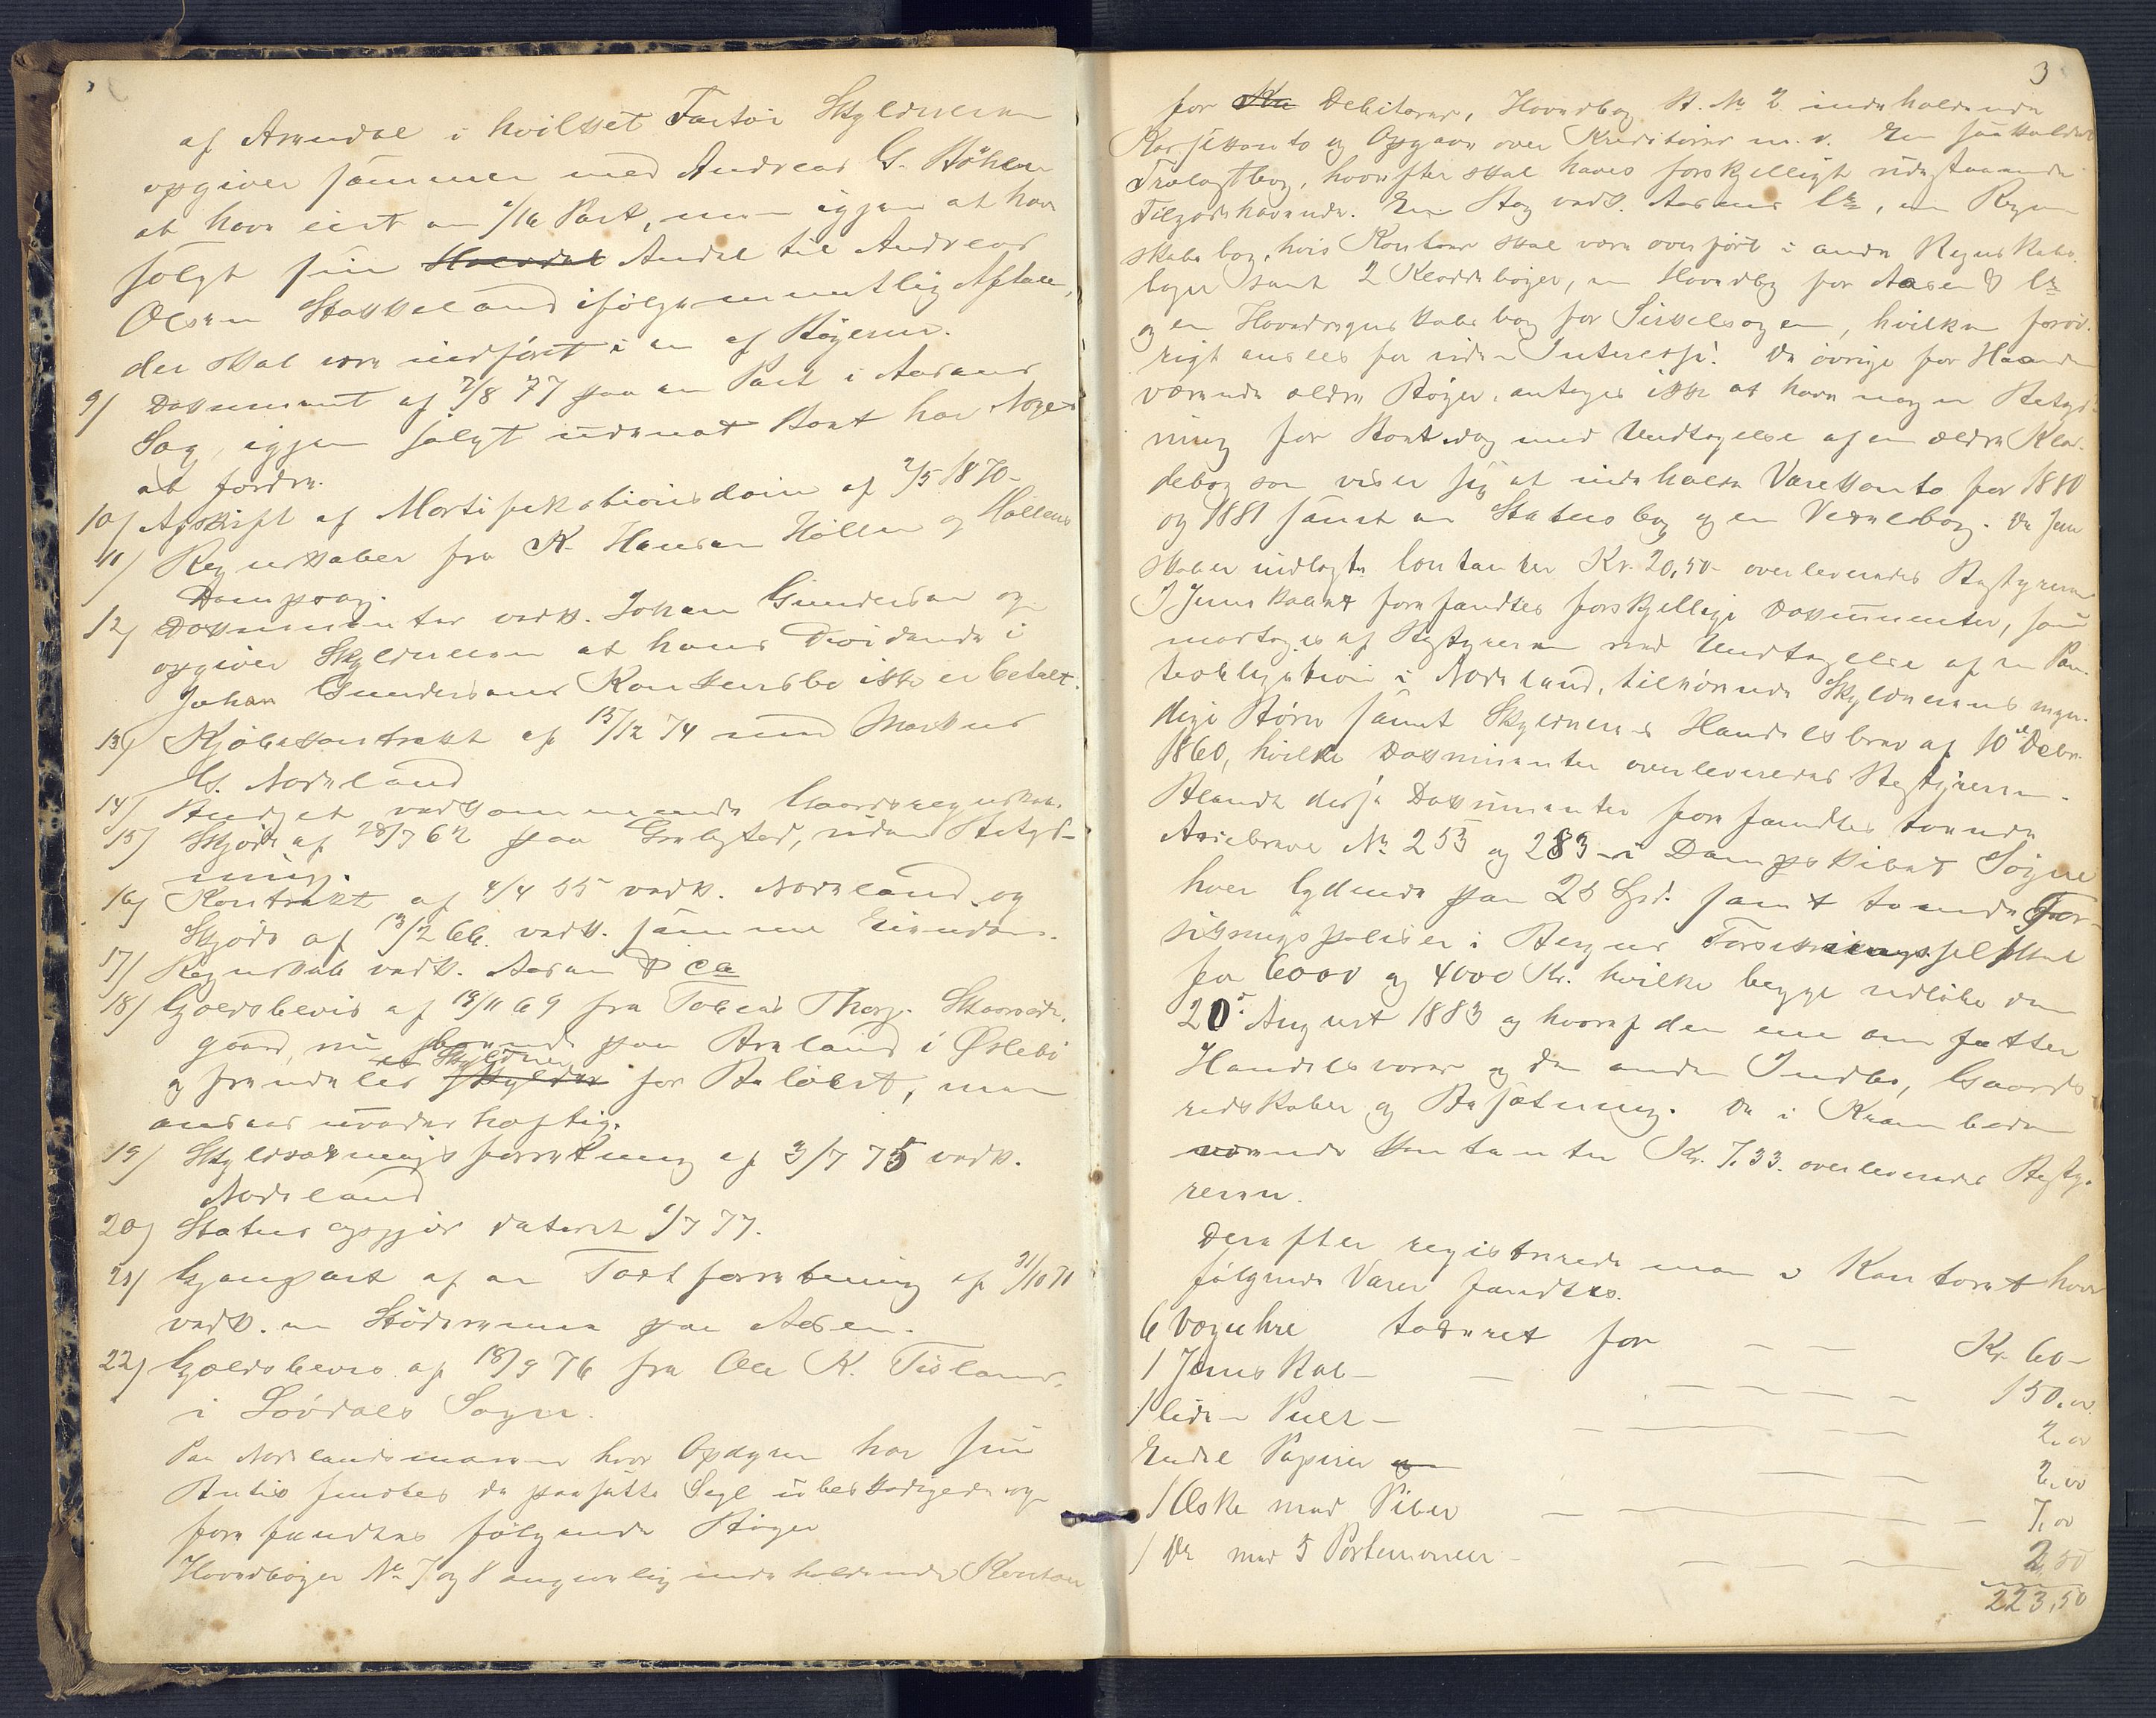 af Arendal i hvilket Fartöi Skyldneren
opgiver sammen med Andreas G. Böhler
at have eiet en 1/16 Part, men igjen at have
solgt sin Halvdel Andel til Andreas
Olsen Stakkeland ifølge mundtlig Aftale,
der skal være indført i en af Bøgerne.
9/ Dokument af 2/8 77 paa en Part i Aasens
Sag, igjen solgt uden at Boet har Noget
at fordre.
10/ Afskrift af Mortifikationsdom af 2/5 1870
11/ Regnskaber fra K. Hansen Höllen og Höllens
Dampsag.
12/ Dokumenter vedk. Johan Gundersen og
opgiver Skyldneren at hans Dividende i
Johan Gundersens Konkursbo ikke er betalt.
13/ Kjöbekontrakt af 15/12 74 med Markus
G. Nodeland
14/ Budget vedkommende Gaardsregnskab.
15/ Skjöde af 28/7 62 paa Grebsted, uden Betyd-
ning.
16/ Kontrakt af 4/4 55 vedk. Nodeland og
Skjöde af 13/2 66 vedk. samme Eiendom.
17/ Regnskab vedk. Aasen & Co
18/ Gjeldsbevis af 19/11 69 fra Tobias Thorj. Skaarede-
gaard, nu boende paa Breland i Øslebö
og fremdeles et Skyldner skylder for Belöbet, men
ansees uvederhæftig.
19/ Skyldsætningsforretning af 3/7 75 vedk.
Nodeland
20/ Status opgjør dateret 1/7 77.
21/ Gjenpart af en Taxtforretning af 31/10 71
vedk. en Stödemme paa Aasen.
22/ Gjældsbevis af 18/9 76 fra Ole K. Tisland,
i Lövdals Sogn.
Paa Nodelandsmoen hvor Opdyren har sin
Butik fandtes de paasatte Segl ubeskadigede og
forefandtes følgende Bøger
Hovedbøger No 7 og 8 angivelig indeholdende Kontoer
3
for Kre Debitorer, Hovedbog B. No 2 indeholdende
Kassekonto og Opgave over Kreditorer m. v. En saakaldet
Trælastbog, hvorefter skal haves forskjelligt udestaaende
Tilgodehavende. En Bog vedk. Aasens Co, en Regn-
skabsbog, hvis Kontoer skal være overført i andre Regnskabs-
bøger samt 2 Kladdebøger, en Hovedbog for Aasen & Co
og en Hovedregnskabsbog for Sirkelsagen, hvilken forøv-
rigt ansees for uden Interesse. De øvrige for Haanden
værende ældre Bøger, antages ikke at have nogen Betyd-
ning for Boet dog med Undtagelse af en ældre Klad-
debog som viser sig at indeholde Varekonto for 1880
og 1881 samt en Statusbog og en Vexelbog. De i Jern
skabet indlagte Contanter Kr. 20,50 overleveredes Bestyreren
I Jernskabet forefandtes forskjellige Dokumenter, som
modtoges af Bestyreren med Undtagelse af en Pan-
teobligation i Nodeland, tilhørende Skyldnerens myn-
dige Børn samt Skyldnerens Handelsbrev af 10de Decbr.
1860, hvilke Dokumenter overleveredes Bestyreren.
Blandt disse Dokumenter forefandtes tvende
Aktiebreve No 253 og 283 i Dampskibet Søgne
hver lydende paa 25 Spd. samt tvende For-
sikringspoliser i Bergens Forsikringsselskab
for 6000 og 4000 Kr. hvilke begge udløbe den
20de August 1883 og hvoraf den ene omfatter
Handelsvarer og den anden Indbo, Gaards-
redskaber og Besætning. De i Kramboden
værende Kontanter Kr. 7.33. overleveredes Besty-
reren.
Derefter registrerede man i Kontoret hvor
følgende Varer fandtes.
6 Væguhre taxeret for — — Kr. 60 —
1 Jernskab — — — — — — 150.00
1 liden Pult — — — — — 2.00
Endel Papirer og — — — 2.00
1 Æske med Piber — — — — 7.00
1 Do med 5 Portemonæer — — — 2.50
223,50